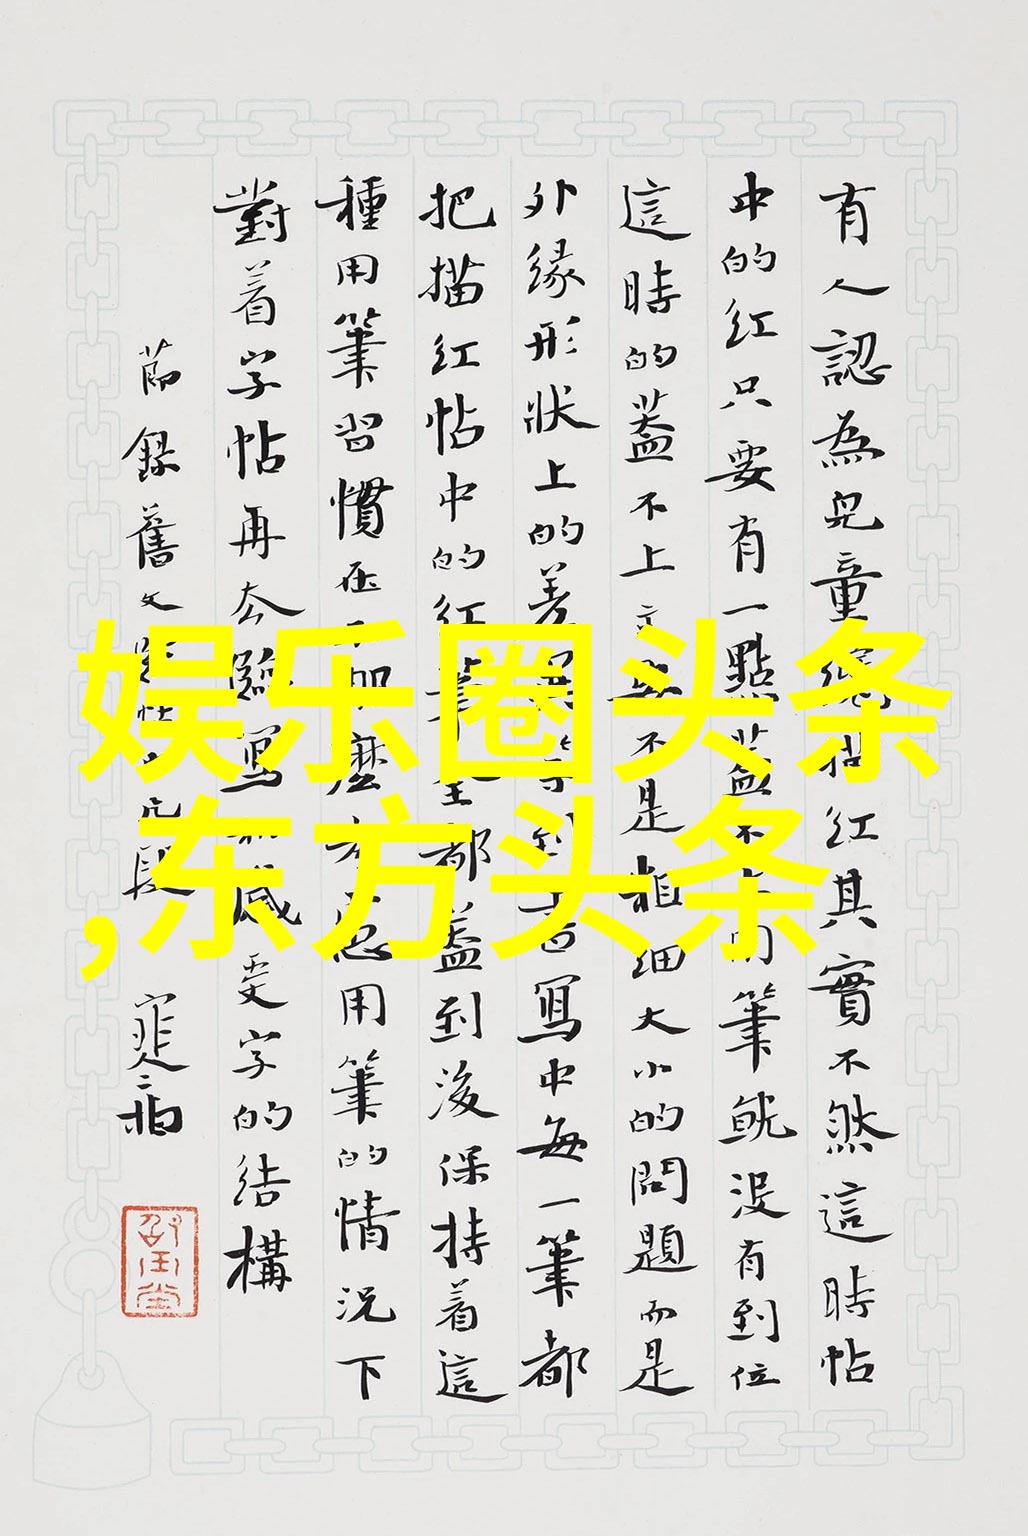 有人認為兒童红其實不然這時帖
中的红只要有一點蓋不筆就没有到位
這時的蓋不上不是粗細大小的問題而是
外緣形狀上的差異等到書寫中每一筆都
把描红帖中的红筆都蓋到後保持着這
種用筆習慣在麼用筆的情況下
對着字帖再去臨寫感受字的結構
節錄舊文段
娱乐圈头条
,东方头条